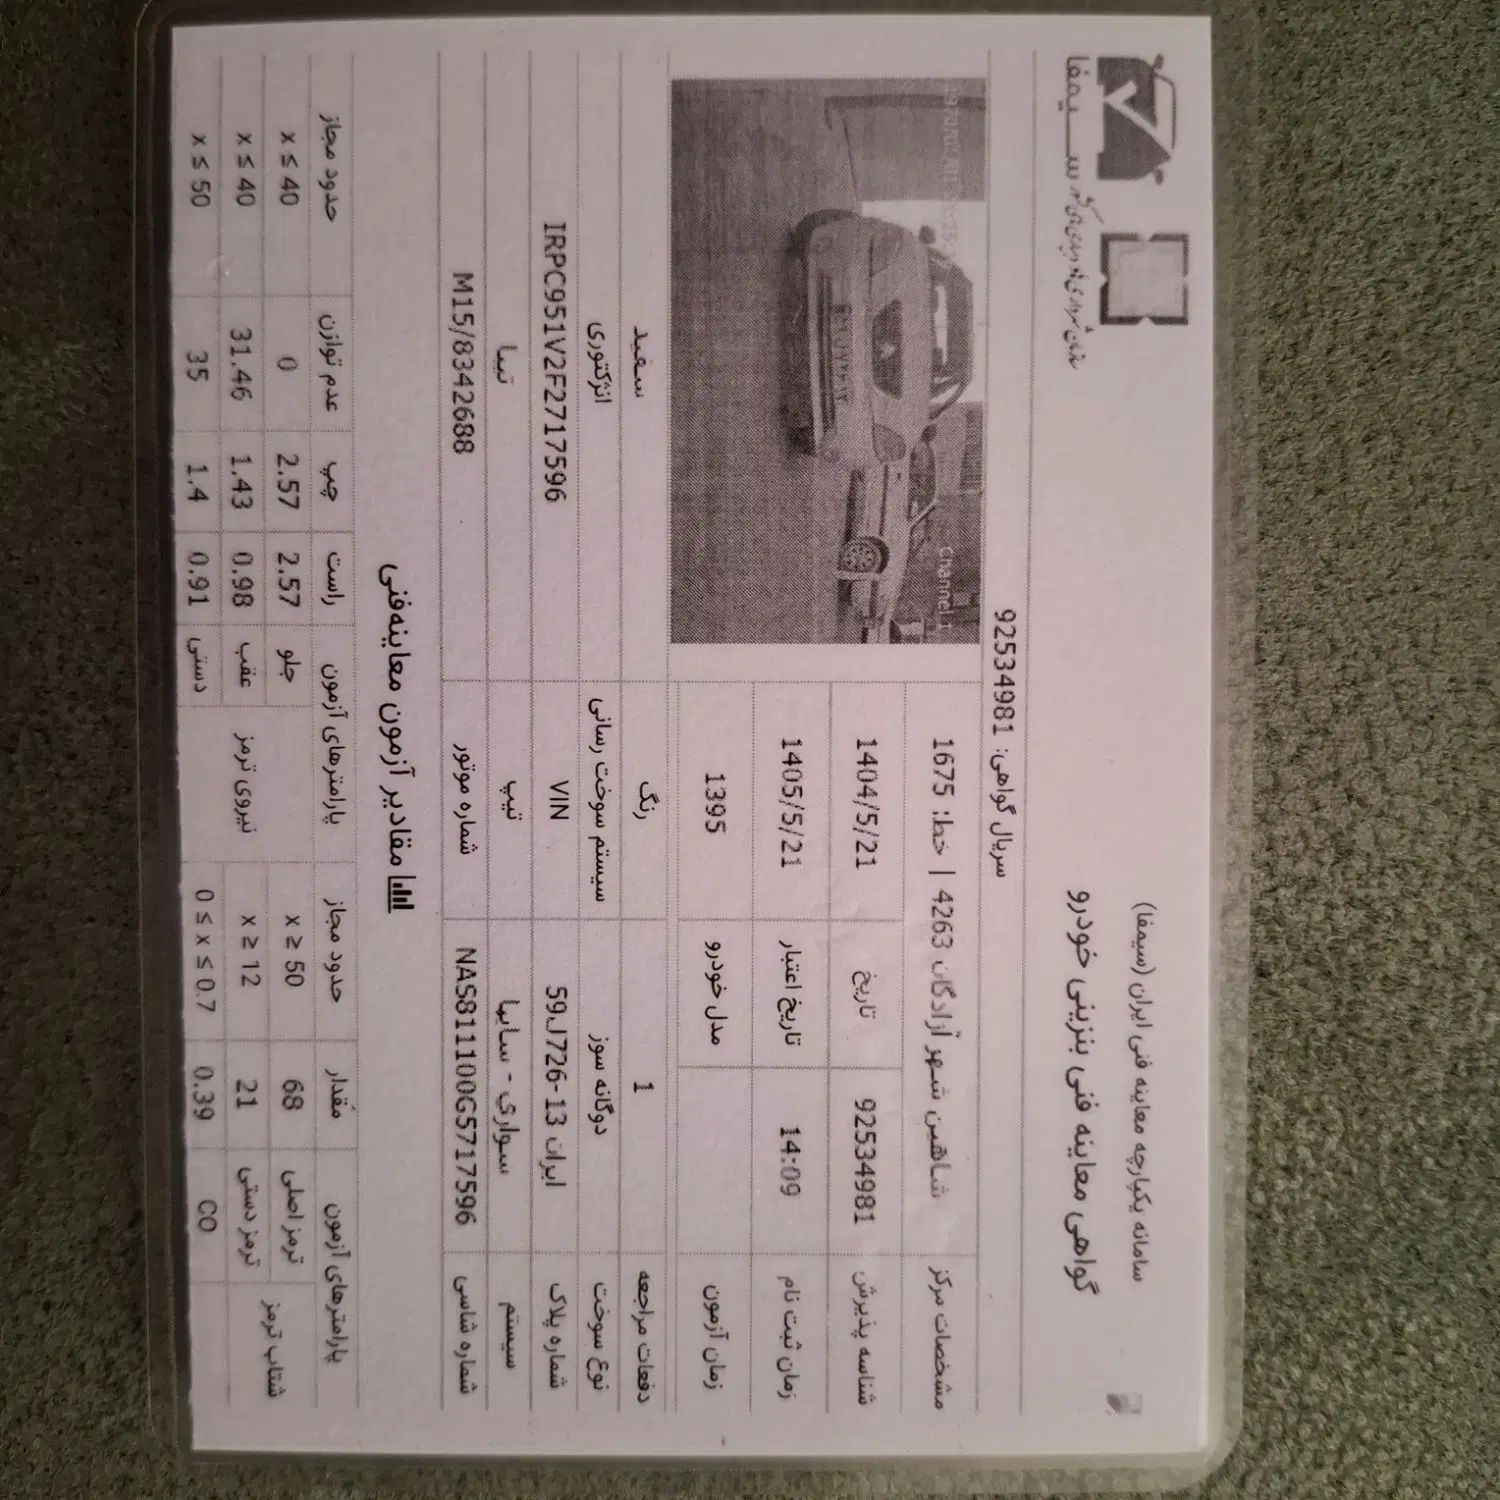 سامانه یکپارچه معاینه فنی ایران (سیمفا)
گواهی معاینه فنی بنزینی خودرو
سیمفا
سریال گواهی: 92534981
مشخصات مرکز شاهین شهر آزادگان 4263 | خط: 1675
شناسه پذیرش 92534981 تاریخ 1404/5/21
زمان ثبت نام 14:09 تاریخ اعتبار 1405/5/21
زمان آزمون مدل خودرو 1395
Channel 1
دفعات مراجعه 1 رنگ سفید
نوع سوخت دوگانه سوز سیستم سوخت رسانی انژکتوری
شماره پلاک ایران 13-726ل59 VIN IRPC951V2F2717596
سیستم سواری - سایپا تیپ تیبا
شماره شاسی NAS811100G5717596 شماره موتور M15/8342688
مقادیر آزمون معاینه‌فنی
پارامترهای آزمون مقدار حدود مجاز پارامترهای آزمون راست چپ عدم توازن حدود مجاز
شتاب ترمز ترمز اصلی 68 x ≥ 50 نیروی ترمز جلو 2.57 2.57 0 x ≤ 40
ترمز دستی 21 x ≥ 12 عقب 0.98 1.43 31.46 x ≤ 40
CO 0.39 0 ≤ x ≤ 0.7 دستی 0.91 1.4 35 x ≤ 50